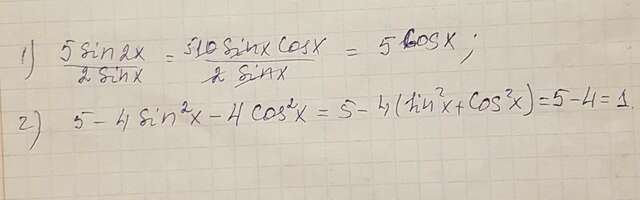 1) 5 sin 2x / 2 sin x = 10 sin x cos x / 2 sin x = 5 cos x;
2) 5 - 4 sin²x - 4 cos²x = 5 - 4 (sin²x + cos²x) = 5 - 4 = 1.